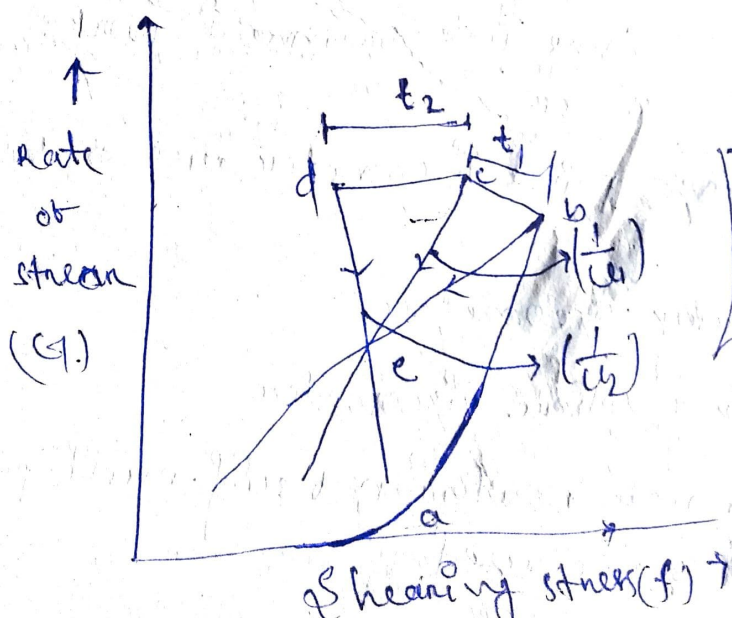 t2
Rate
of
strean
(G.)
d
c
t1
b
(1/u1)
(1/u2)
e
a
Shearing stress(f) →